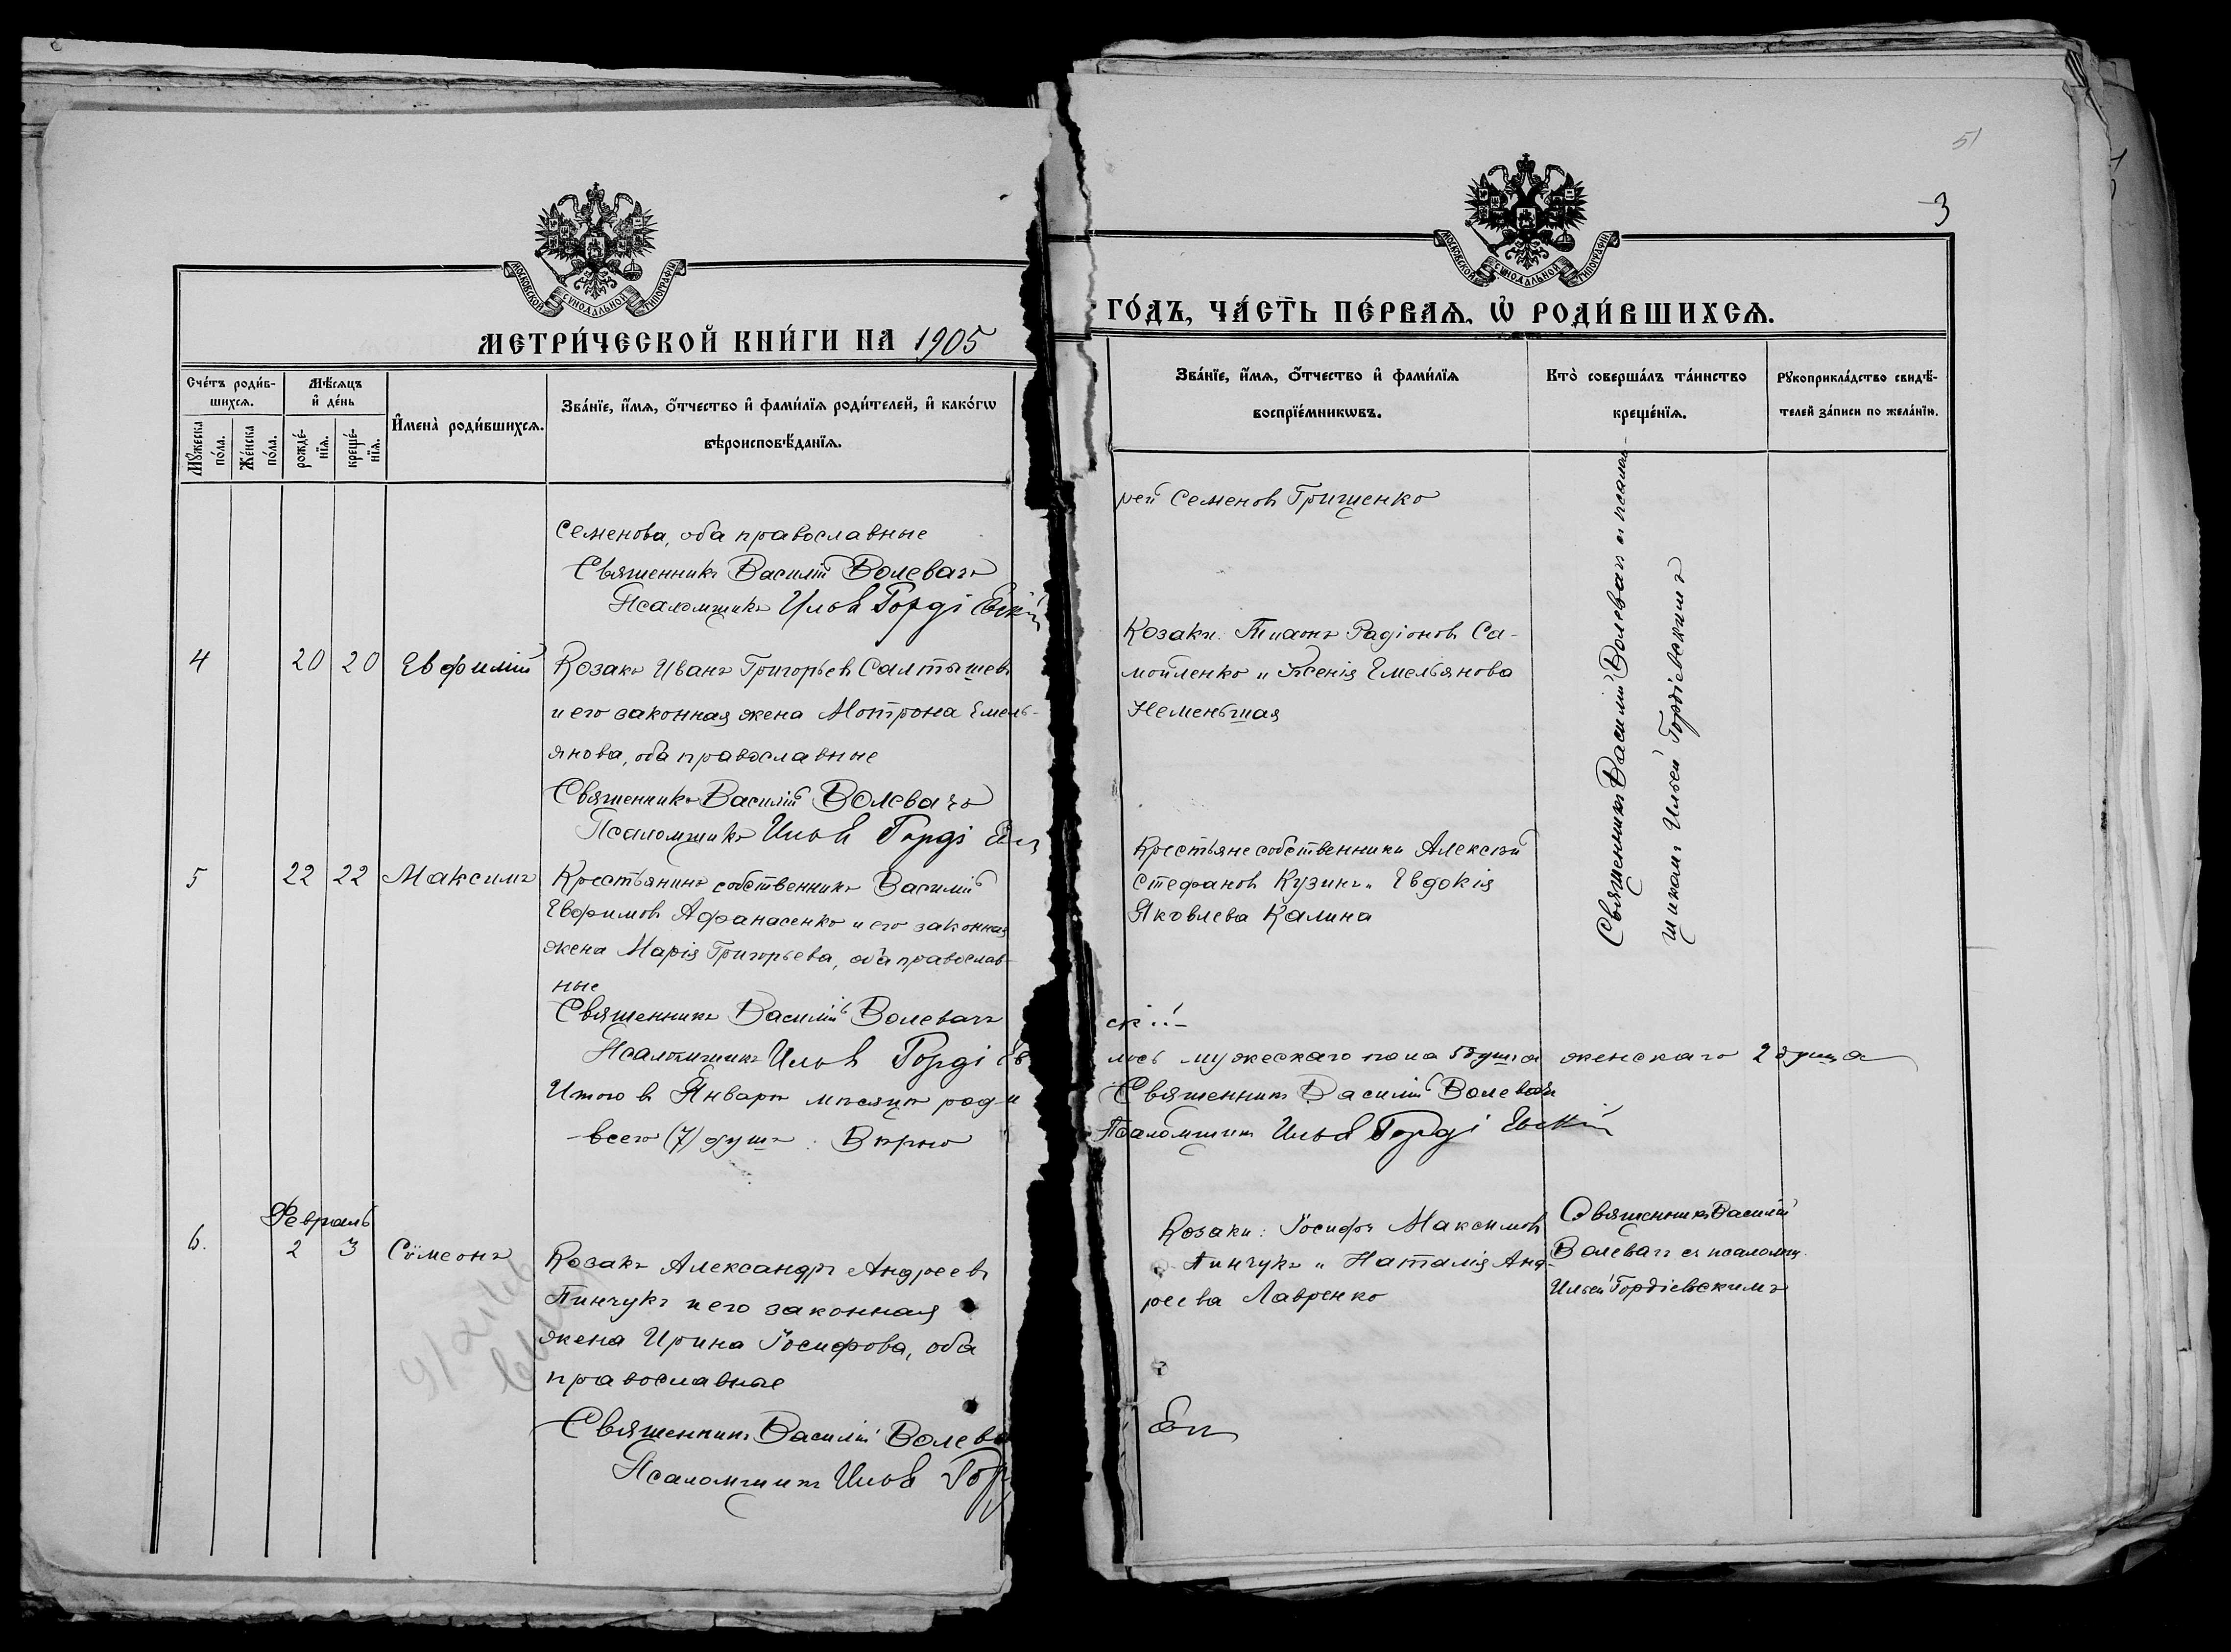 51
3
МОСКОВСКОЙ СѴНОДАЛЬНОЙ ТИПОГРАФІИ
МОСКОВСКОЙ СѴНОДАЛЬНОЙ ТИПОГРАФІИ
МЕТРИ́ЧЕСКОЙ КНИ́ГИ НА 1905
ГО́ДЪ, ЧА́СТЬ ПЕ́РВАѦ, Ѡ҆ РОДИ́ВШИХСѦ.
Сче́тъ роди́в-
шихсѧ.
Мꙋ́жеска
по́ла.
Же́нска
по́ла.
Мѣ́сѧцъ
и҆ де́нь
рожде́-
нїѧ.
креще́-
нїѧ.
И҆мена̀ роди́вшихсѧ.
Зва́нїе, и҆́мѧ, ѻ҆́тчество и҆ фами́лїѧ роди́телей, и҆ како́гѡ
вѣроисповѣ́данїѧ.
Зва́нїе, и҆́мѧ, ѻ҆́тчество и҆ фами́лїѧ
воспрїе́мникѡвъ.
Кто̀ соверша́лъ та́инство
креще́нїѧ.
Рꙋкоприкла́дство свидѣ́-
телей за́писи по жела́нїю.
Семенова, оба православные
Священникъ Василій Волевачъ
Псаломщикъ Илья Гордіевскій
рей Семеновъ Грищенко
4 20 20 Евфимій
Козакъ Иванъ Григорьевъ Салтышевъ
и его законная жена Мотрона Емель-
янова, оба православные
Священникъ Василій Волевачъ
Псаломщикъ Илья Горді
Козаки: Родіоновъ Са-
мойленко и Ксенія Емельянова
Неменьшая
Священникъ Василій Волевачъ съ псалом-
щикомъ Ильей Гордіевскимъ
5 22 22 Максимъ
Крестьянинъ собственникъ Василій
Евфимовъ Афанасенко и его законная
жена Марія Григорьева, оба православ-
ные
Священникъ Василій Волевачъ
Псаломщикъ Илья Гордіев
скій
Крестьяне собственники Алексѣй
Стефановъ Кузинъ и Евдокія
Яковлева Калина
Итого въ Январѣ мѣсяцѣ роди
лось мужескаго пола 5 душъ а женскаго 2 душа
всего (7) душъ. Вѣрно
Священникъ Василій Волевачъ
Псаломщикъ Илья Гордіевскій
Февраль
6. 2 3 Сѵмеонъ
Козакъ Александръ Андреевъ
Пинчукъ и его законная
жена Ирина Іосифова, оба
православные
Священникъ Василій Волева
Псаломщикъ Илья Гор
Козаки: Іосифъ Максимовъ
Пинчукъ и Наталія Анд-
реева Лавренко
Священникъ Василій
Волевачъ съ псаломщ.
Ильей Гордіевскимъ